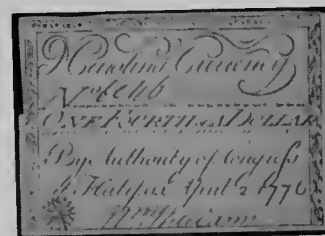 N Carolina Currency
No
ONE FOURTH of A DOLLAR
By Authority of Congress
Halifax April 2 1776